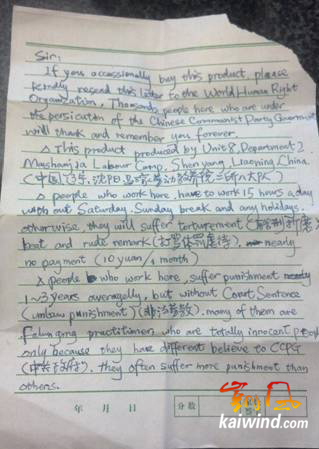 Sir:
If you occassionally buy this product, please
kindly resend this letter to the World Human Right
Organization. Thousands people here who are under
the persicution of the Chinese Communist Party Government
will thank and remember you forever.
This product produced by Unit 8, Department 2
Mashanjia Labour Camp, Shenyang, Liaoning, China.
(中国,辽宁,沈阳,马三家劳动教养院二所八大队)
people who work here, have to work 15 hours a day
with out Saturday, Sunday break and any holidays,
otherwise, they will suffer torturement
beat and rude remark (打骂体罚虐待), nearly
no payment (10 yuan / 1 month)
people who work here, suffer punishment
1~3 years averagelly, but without Court Sentence
(unlaw punishment) (非法劳教). many of them are
Falungong practitioner, who are totally innocent people
only because they have different believe to CCPG
(中共政府), they often suffer more punishment than
others.
年 月 日
分数
kaiwind.com